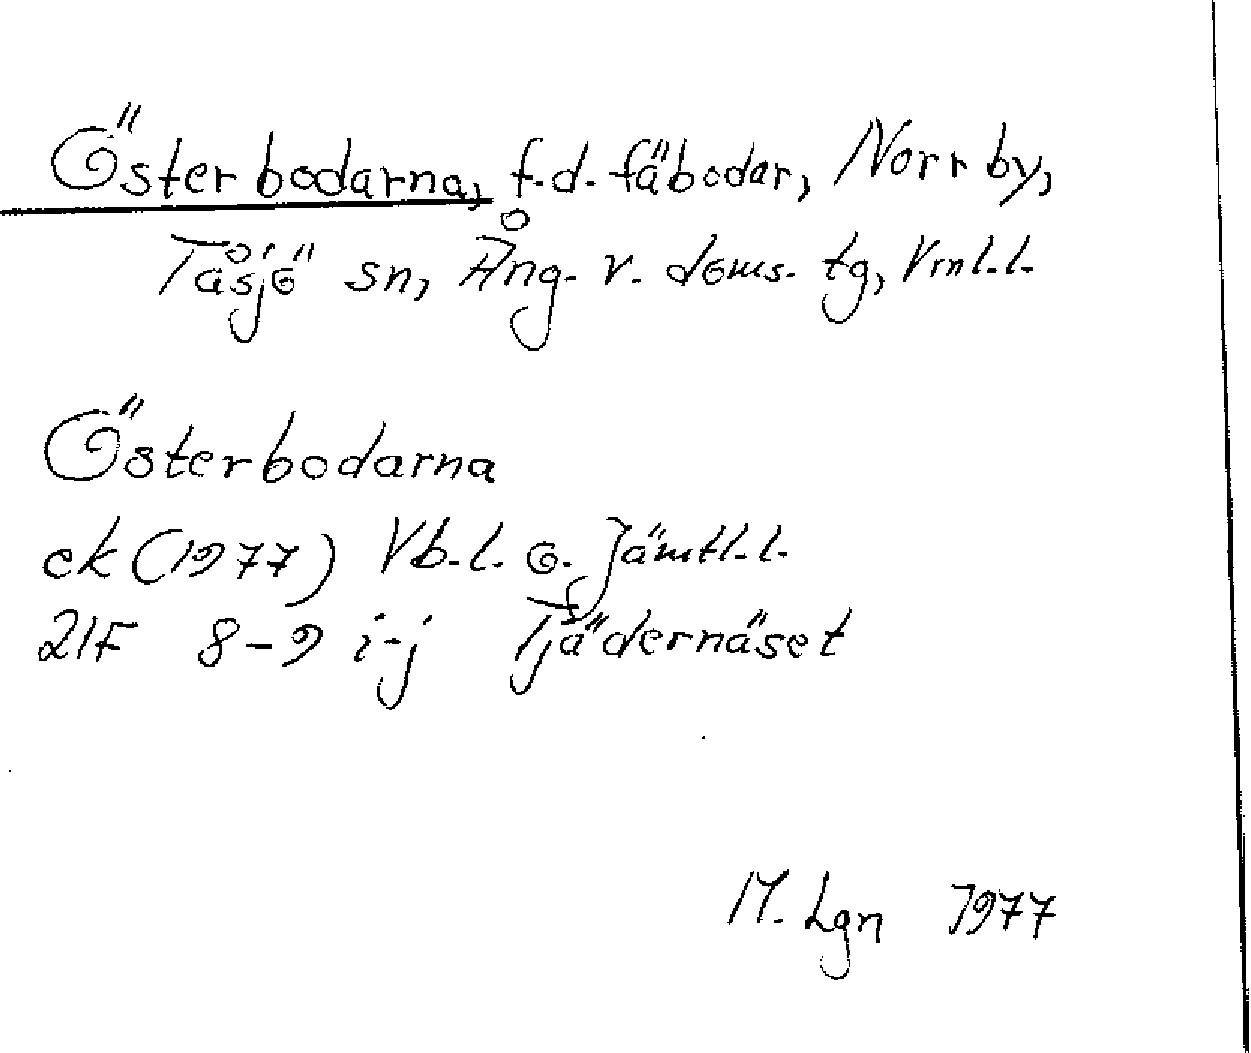 Österbodarna, f.d. fäbodar, Norrby,
Tåsjö sn, Ång. v. doms. tg, Vrnl.l.
Österbodarna
ek (1977) Vb.l. o. Jämtl.l.
21F 8-9 i-j Tjädernäset
M. Lgn 1977